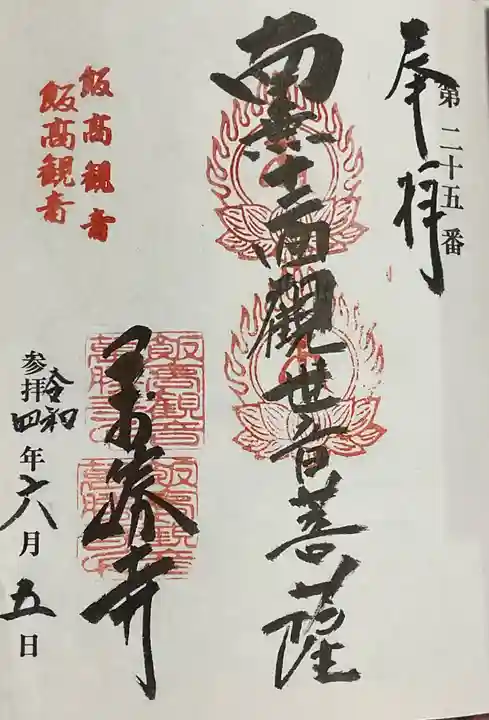 奉拝
第二十五番
南無十一面観世音菩薩
飯高観音
飯高観音
飯高観音
飯高観音
萬勝寺
参拝 令和四年六月五日